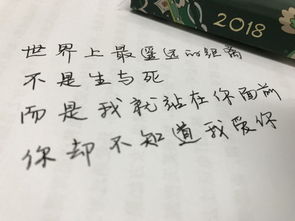 2018
世界上最遥远的距离
不是生与死
而是我就站在你面前
你却不知道我爱你